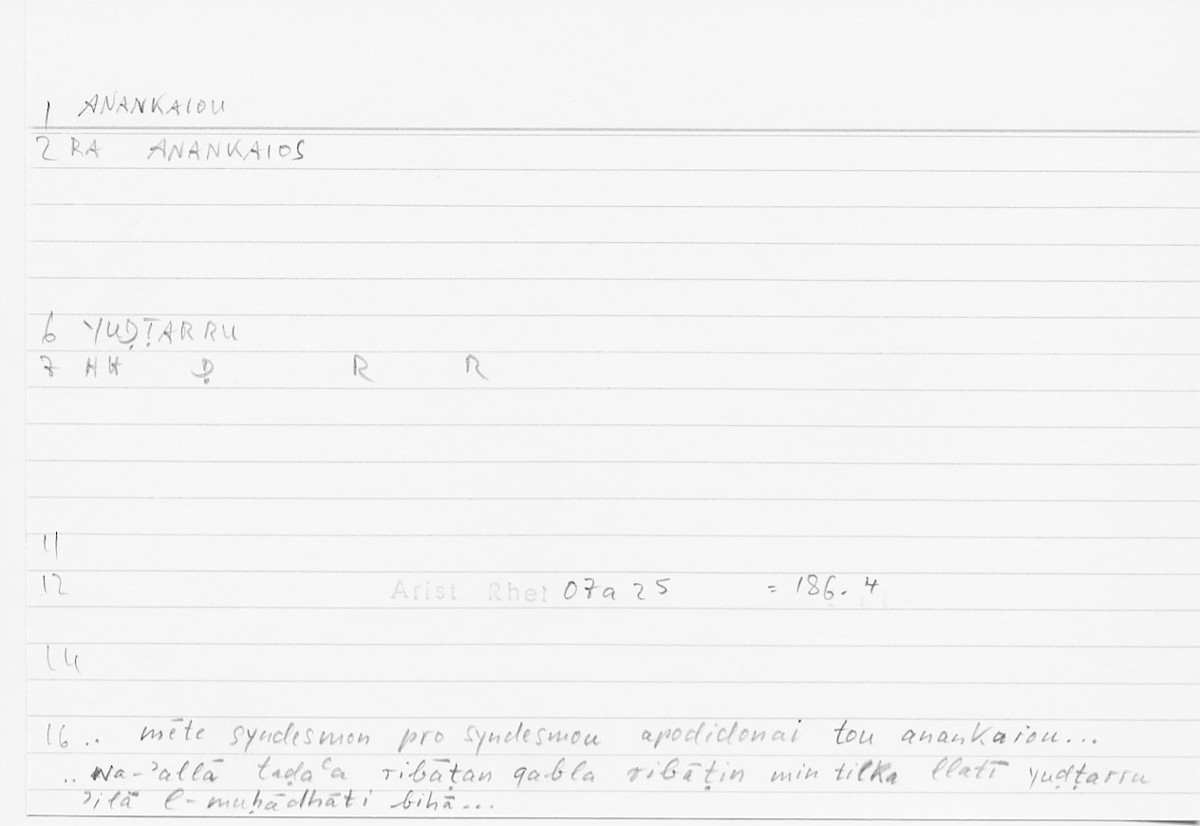 1 ANANKAIOU
2 RA ANANKAIOS
6 YUḌṬARRU
7 HH Ḍ R R
11
12 Arist Rhet 07a 25 = 186.4
14
16 .. mēte syndesmon pro syndesmou apodidonai tou anankaiou...
.. wa-ʾallā taḍaʿa ribāṭan qabla ribāṭin min tilka llatī yuḍṭarru
ʾilā l-muḥādhāti bihā...